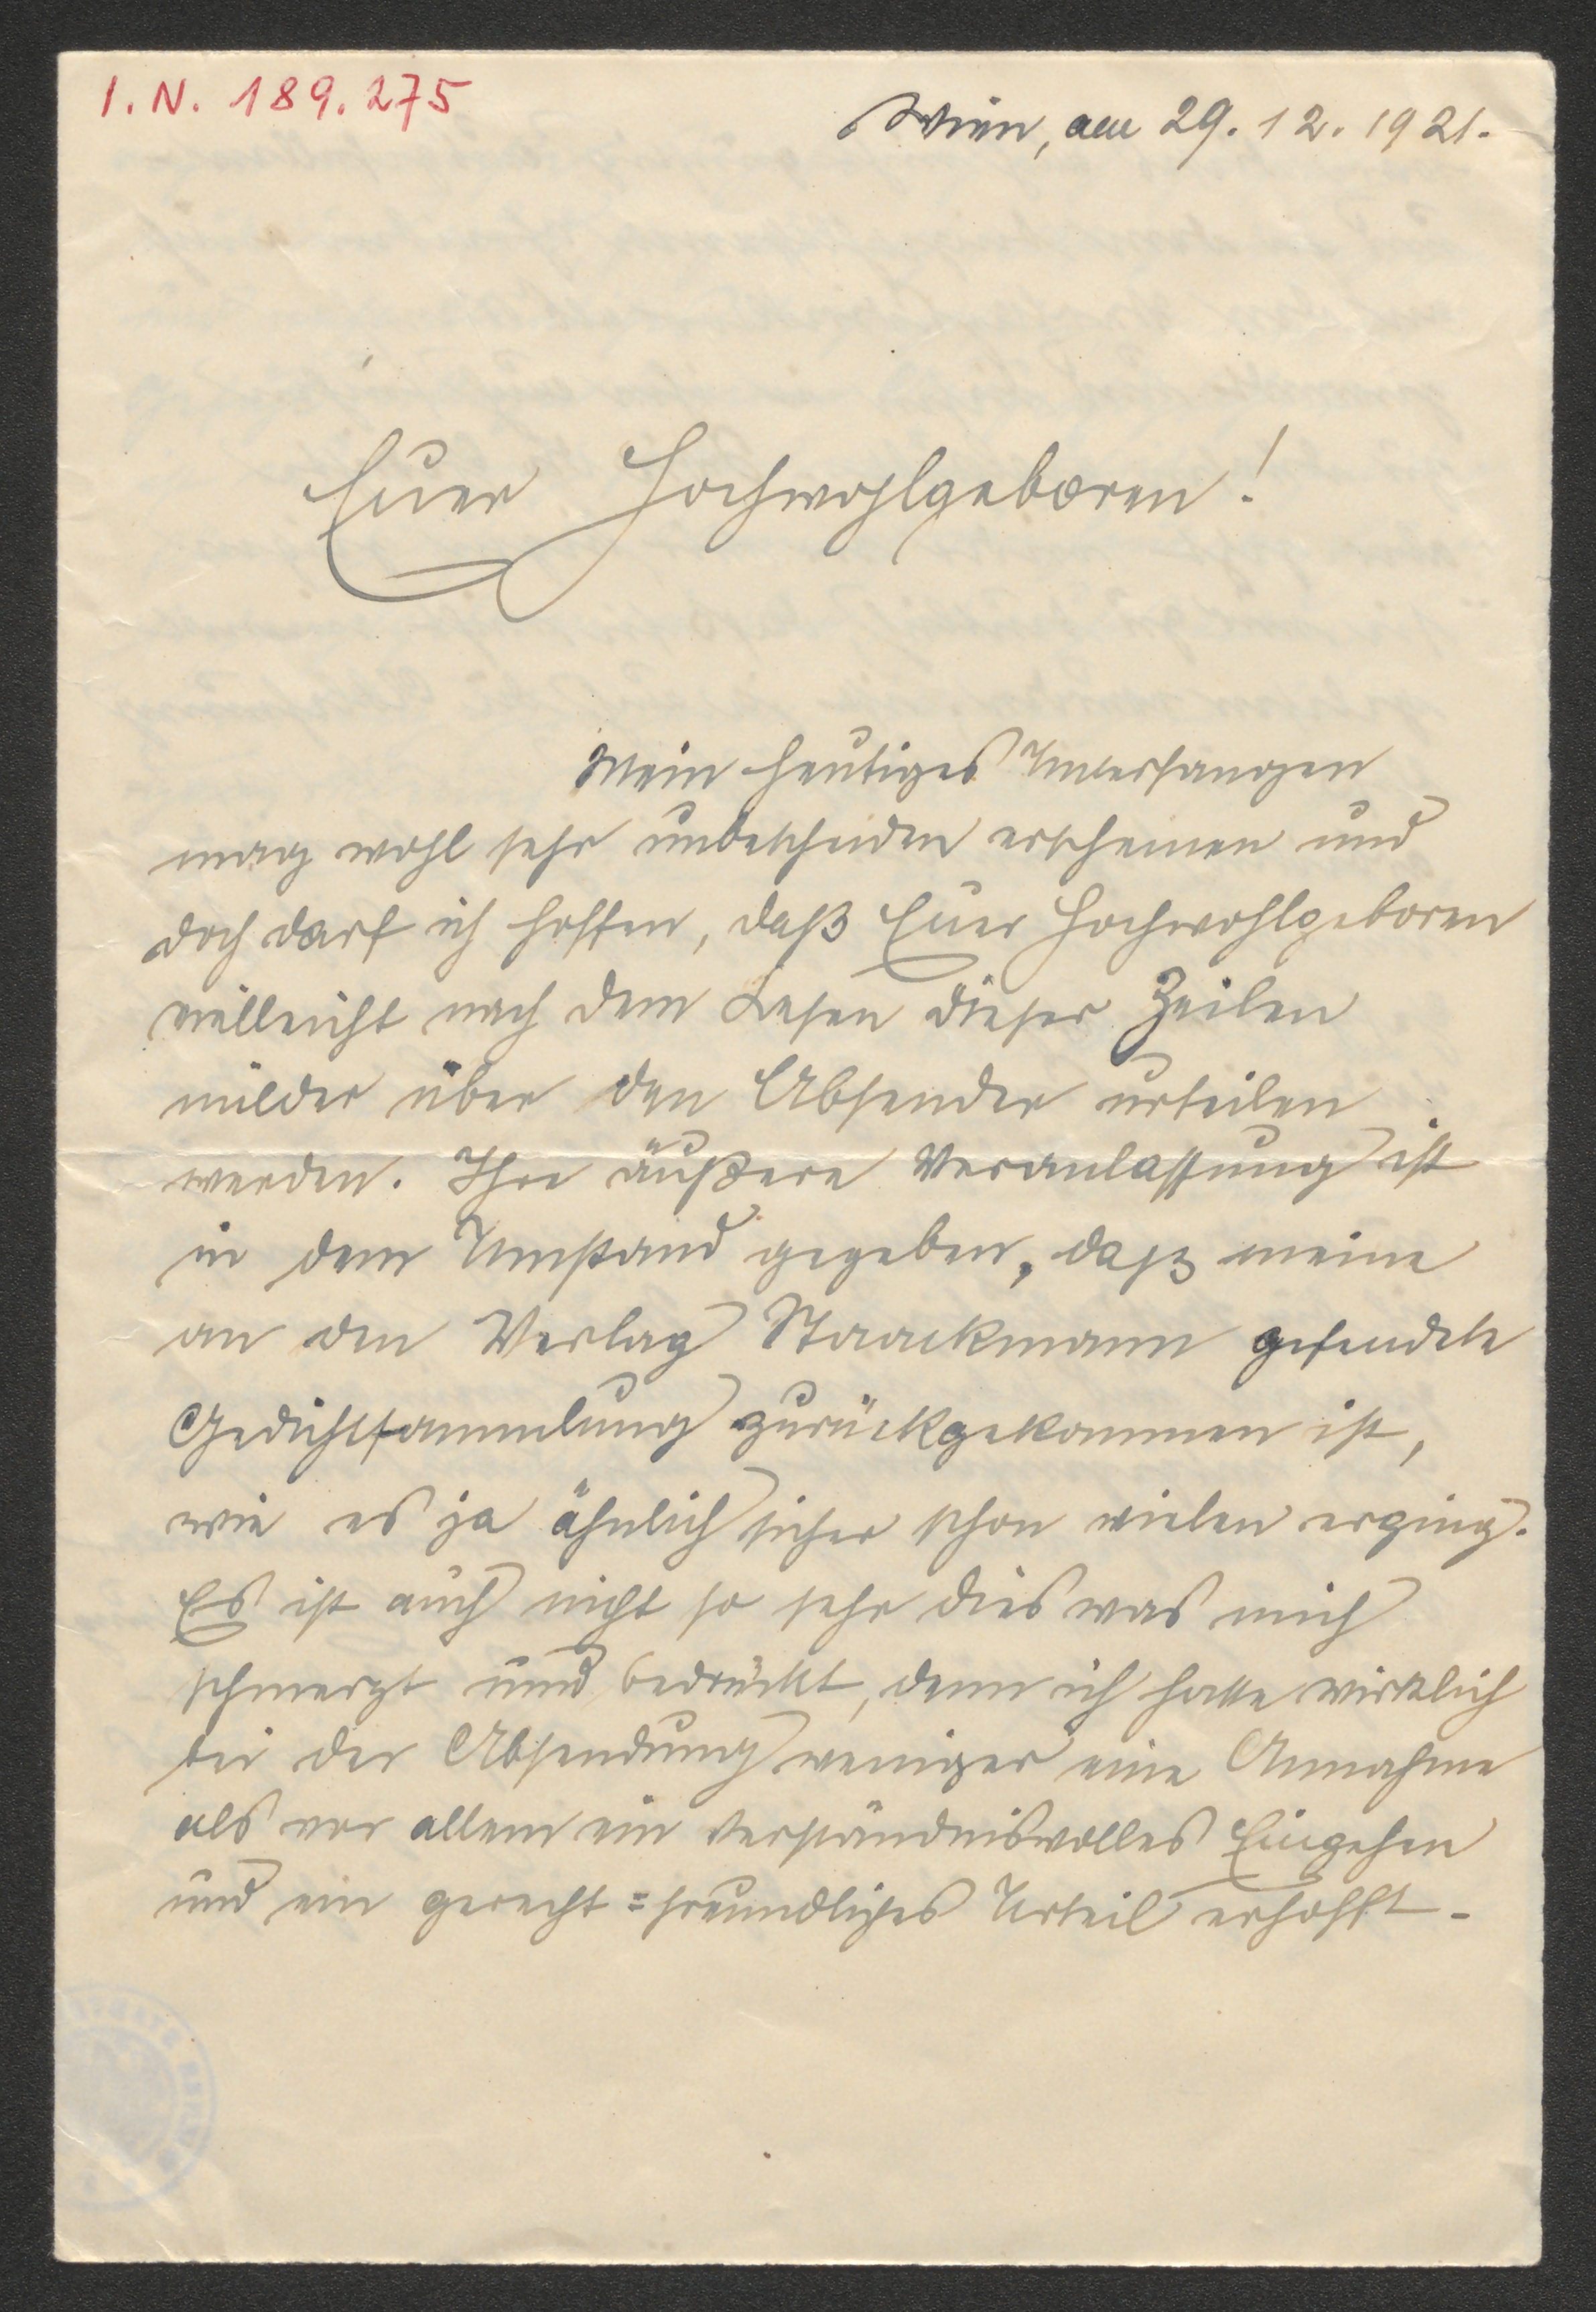 I.N. 189.275
Wien, am 29. 12. 1921.
Euer Hochwohlgeboren!
Mein heutiges Unterfangen
mag wohl sehr unbescheiden erscheinen und
doch darf ich hoffen, daß Euer Hochwohlgeboren
vielleicht nach dem Lesen dieser Zeilen
milder über den Absender urteilen
werden. Ihre äußere Veranlassung ist
in dem Umstand gegeben, daß meine
an den Verlag Staackmann gesendete
Gedichtsammlung zurückgekommen ist,
wie es ja ähnlich sicher schon vielen erging.
Es ist auch nicht so sehr dies was mich
schmerzt und bedrückt, denn ich hatte wirklich
bei der Absendung weniger eine Annahme
als vor allem ein verständnisvolles Eingehen
und ein gerecht=freundliches Urteil erhofft.